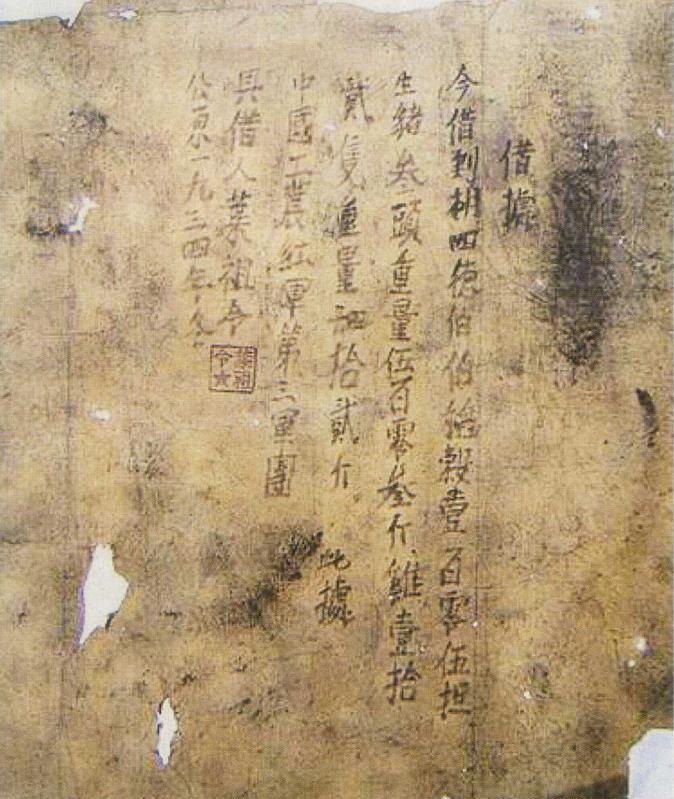 借據
今借到胡四德伯伯稻穀壹百零伍担
生豬叁頭重量伍百零叁斤、雞壹拾
貳隻重量肆拾貳斤 此據
中國工農紅軍第三軍團
具借人葉祖令
公元一九三四年
葉祖令